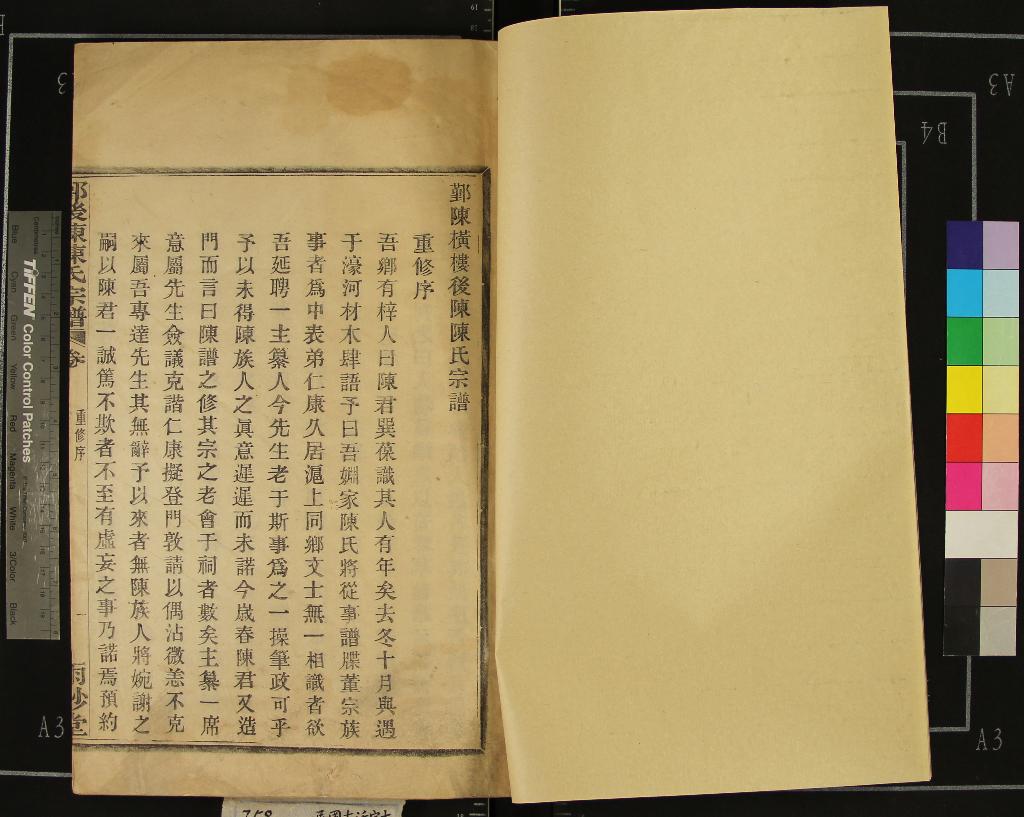 鄞陳橫樓後陳陳氏宗譜
重修序
吾鄉有梓人曰陳君巽葆識其人有年矣去冬十月與遇
于濠河材木肆語予曰吾婣家陳氏將從事譜牒董宗族
事者爲中表弟仁康久居滬上同鄉文士無一相識者欲
吾延聘一主纂人今先生老于斯事爲之一操筆政可乎
予以未得陳族人之眞意遲遲而未諾今歲春陳君又造
門而言曰陳譜之修其宗之老會于祠者數矣主纂一席
意屬先生僉議克諧仁康擬登門敦請以偶沾微恙不克
來屬吾專達先生其無辭予以來者無陳族人將婉謝之
嗣以陳君一誠篤不欺者不至有虛妄之事乃諾焉預約
後陳陳氏宗譜
卷
重修序
一
TIFFEN Color Control Patches
Blue
Cyan
Green
Yellow
Red
Magenta
White
3/Color
Black
A3
B4
A3
A3
758